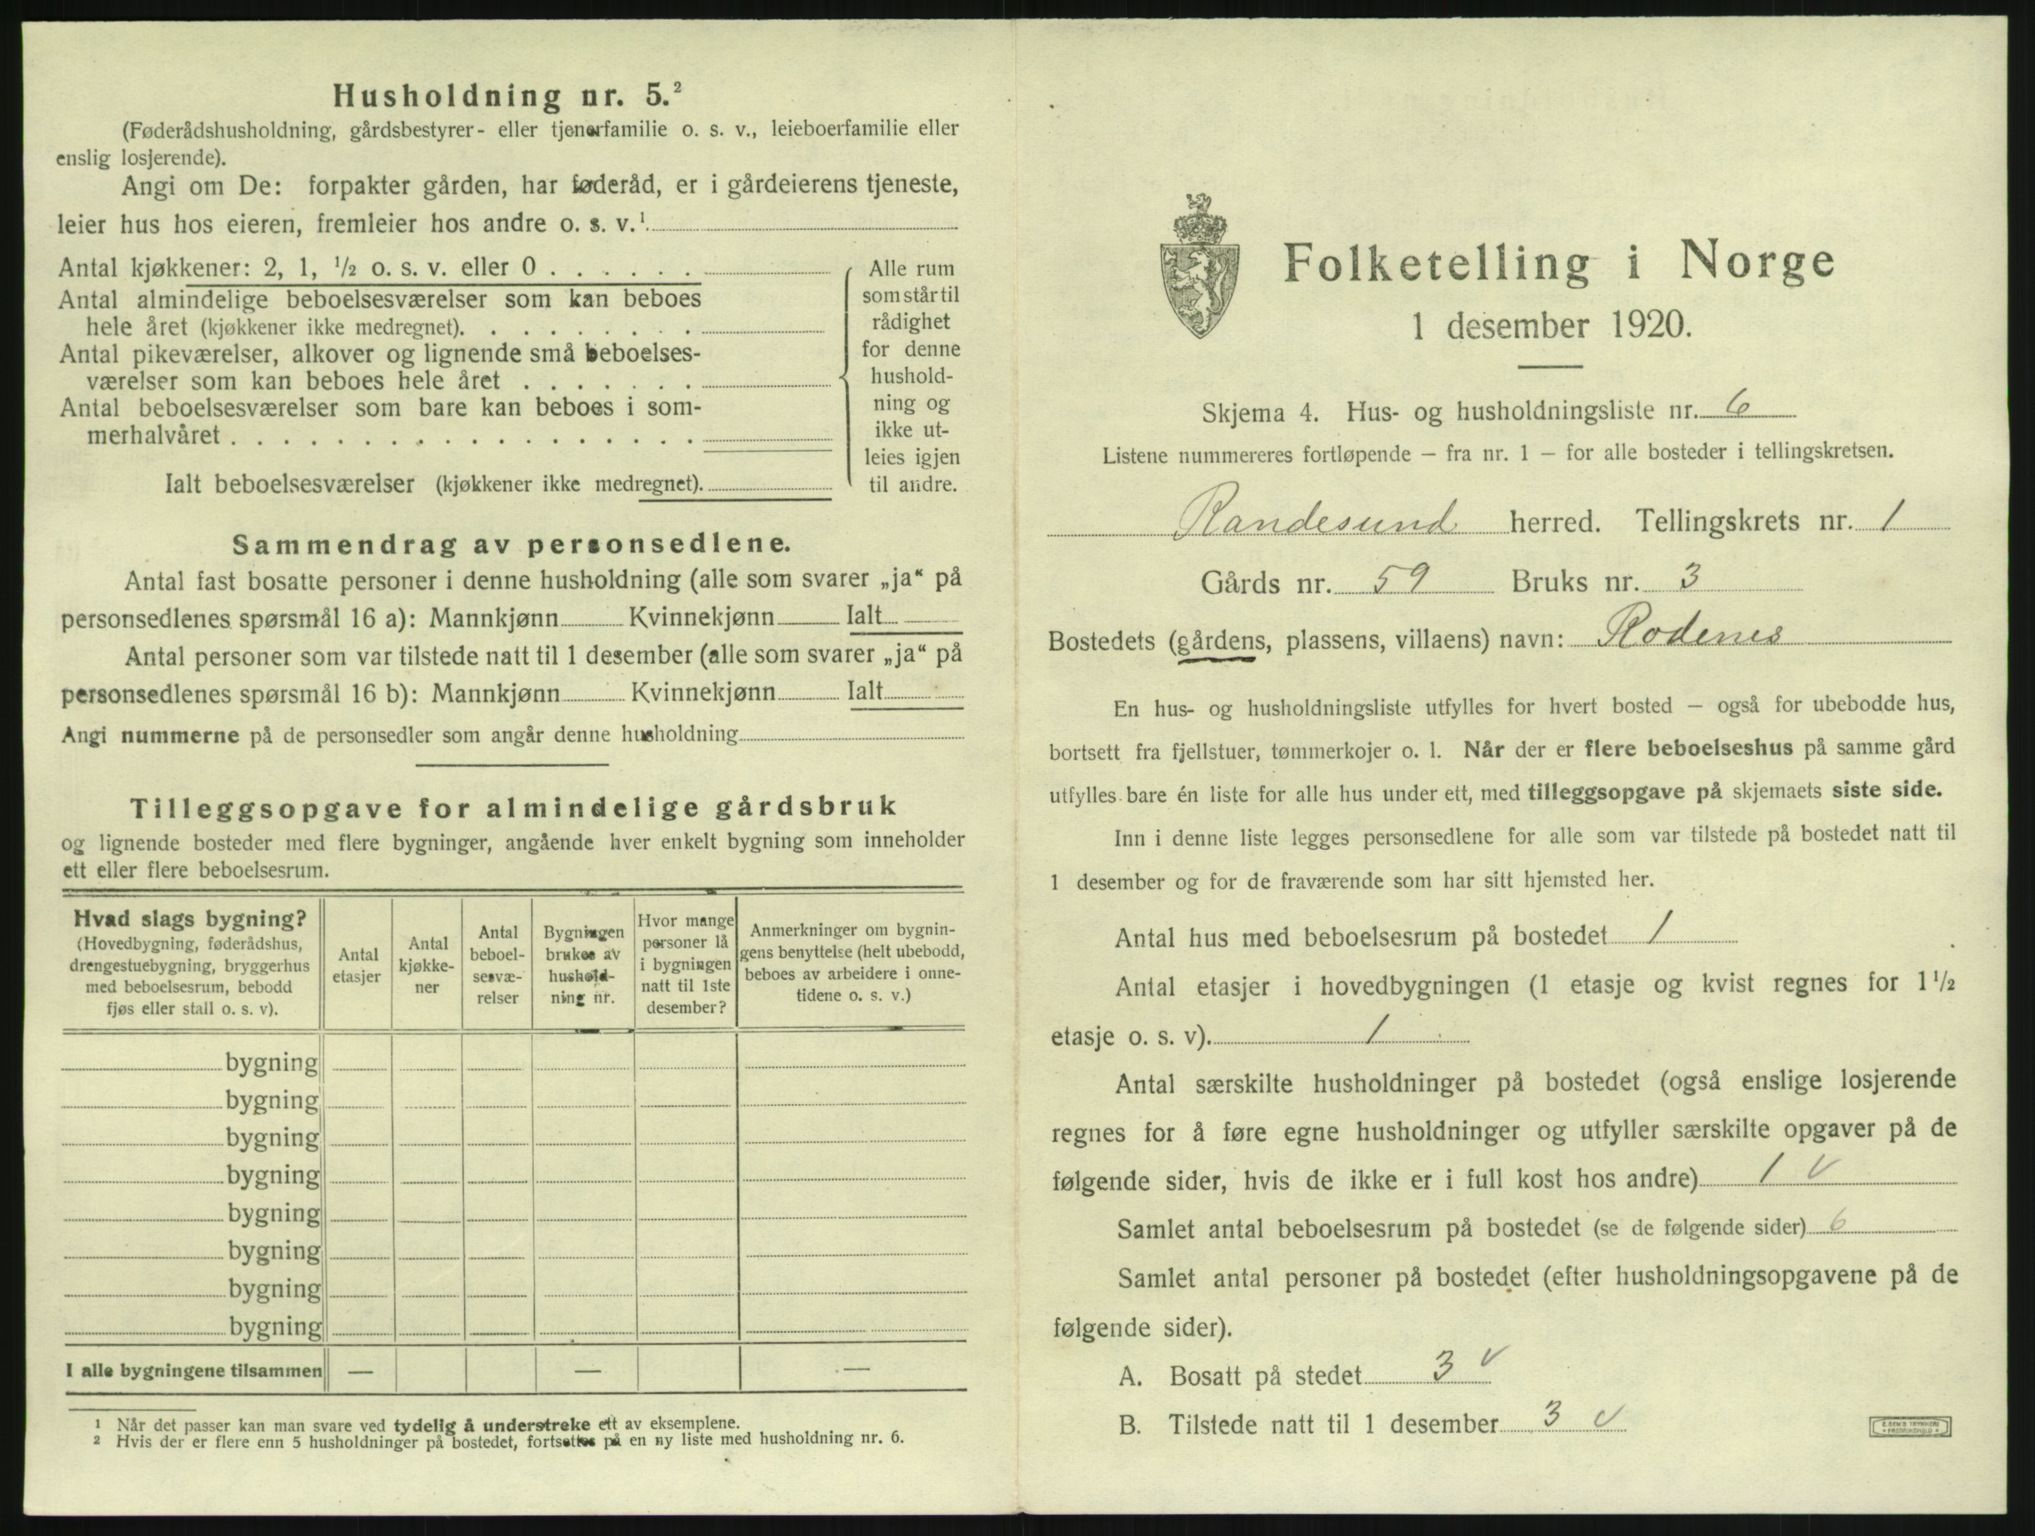 Husholdning nr. 5.²
(Føderådshusholdning, gårdsbestyrer- eller tjenerfamilie o. s. v., leieboerfamilie eller
enslig losjerende).
Angi om De: forpakter gården, har føderåd, er i gårdeierens tjeneste,
leier hus hos eieren, fremleier hos andre o. s. v.¹
Antal kjøkkener: 2, 1, ½ o. s. v. eller 0
Antal almindelige beboelsesværelser som kan beboes
hele året (kjøkkener ikke medregnet).
Antal pikeværelser, alkover og lignende små beboelses-
værelser som kan beboes hele året
Antal beboelsesværelser som bare kan beboes i som-
merhalvåret
Ialt beboelsesværelser (kjøkkener ikke medregnet).
Alle rum
som står til
rådighet
for denne
hushold-
ning og
ikke ut-
leies igjen
til andre.
Sammendrag av personsedlene.
Antal fast bosatte personer i denne husholdning (alle som svarer „ja“ på
personsedlenes spørsmål 16 a): Mannkjønn Kvinnekjønn Ialt
Antal personer som var tilstede natt til 1 desember (alle som svarer „ja“ på
personsedlenes spørsmål 16 b): Mannkjønn Kvinnekjønn Ialt
Angi nummerne på de personsedler som angår denne husholdning
Tilleggsopgave for almindelige gårdsbruk
og lignende bosteder med flere bygninger, angående hver enkelt bygning som inneholder
ett eller flere beboelsesrum.
Hvad slags bygning?
(Hovedbygning, føderådshus,
drengestuebygning, bryggerhus
med beboelsesrum, bebodd
fjøs eller stall o. s. v).
Antal
etasjer
Antal
kjøkke-
ner
Antal
beboel-
sesvæ-
relser
Bygningen
brukes av
hushold-
ning nr.
Hvor mange
personer lå
i bygningen
natt til 1ste
desember?
Anmerkninger om bygnin-
gens benyttelse (helt ubebodd,
beboes av arbeidere i onne-
tidene o. s. v.)
bygning
bygning
bygning
bygning
bygning
bygning
bygning
bygning
I alle bygningene tilsammen — — —
¹ Når det passer kan man svare ved tydelig å understreke ett av eksemplene.
² Hvis der er flere enn 5 husholdninger på bostedet, fortsettes på en ny liste med husholdning nr. 6.
Folketelling i Norge
1 desember 1920.
Skjema 4. Hus- og husholdningsliste nr. 6
Listene nummereres fortløpende — fra nr. 1 — for alle bosteder i tellingskretsen.
Randesund herred. Tellingskrets nr. 1
Gårds nr. 59 Bruks nr. 3
Bostedets (gårdens, plassens, villaens) navn: Rodenes
En hus- og husholdningsliste utfylles for hvert bosted — også for ubebodde hus,
bortsett fra fjellstuer, tømmerkojer o. l. Når der er flere beboelseshus på samme gård
utfylles bare én liste for alle hus under ett, med tilleggsopgave på skjemaets siste side.
Inn i denne liste legges personsedlene for alle som var tilstede på bostedet natt til
1 desember og for de fraværende som har sitt hjemsted her.
Antal hus med beboelsesrum på bostedet 1
Antal etasjer i hovedbygningen (1 etasje og kvist regnes for 1½
etasje o. s. v). 1
Antal særskilte husholdninger på bostedet (også enslige losjerende
regnes for å føre egne husholdninger og utfyller særskilte opgaver på de
følgende sider, hvis de ikke er i full kost hos andre) 1 v
Samlet antal beboelsesrum på bostedet (se de følgende sider) 6
Samlet antal personer på bostedet (efter husholdningsopgavene på de
følgende sider).
A. Bosatt på stedet 3 v
B. Tilstede natt til 1 desember 3 v